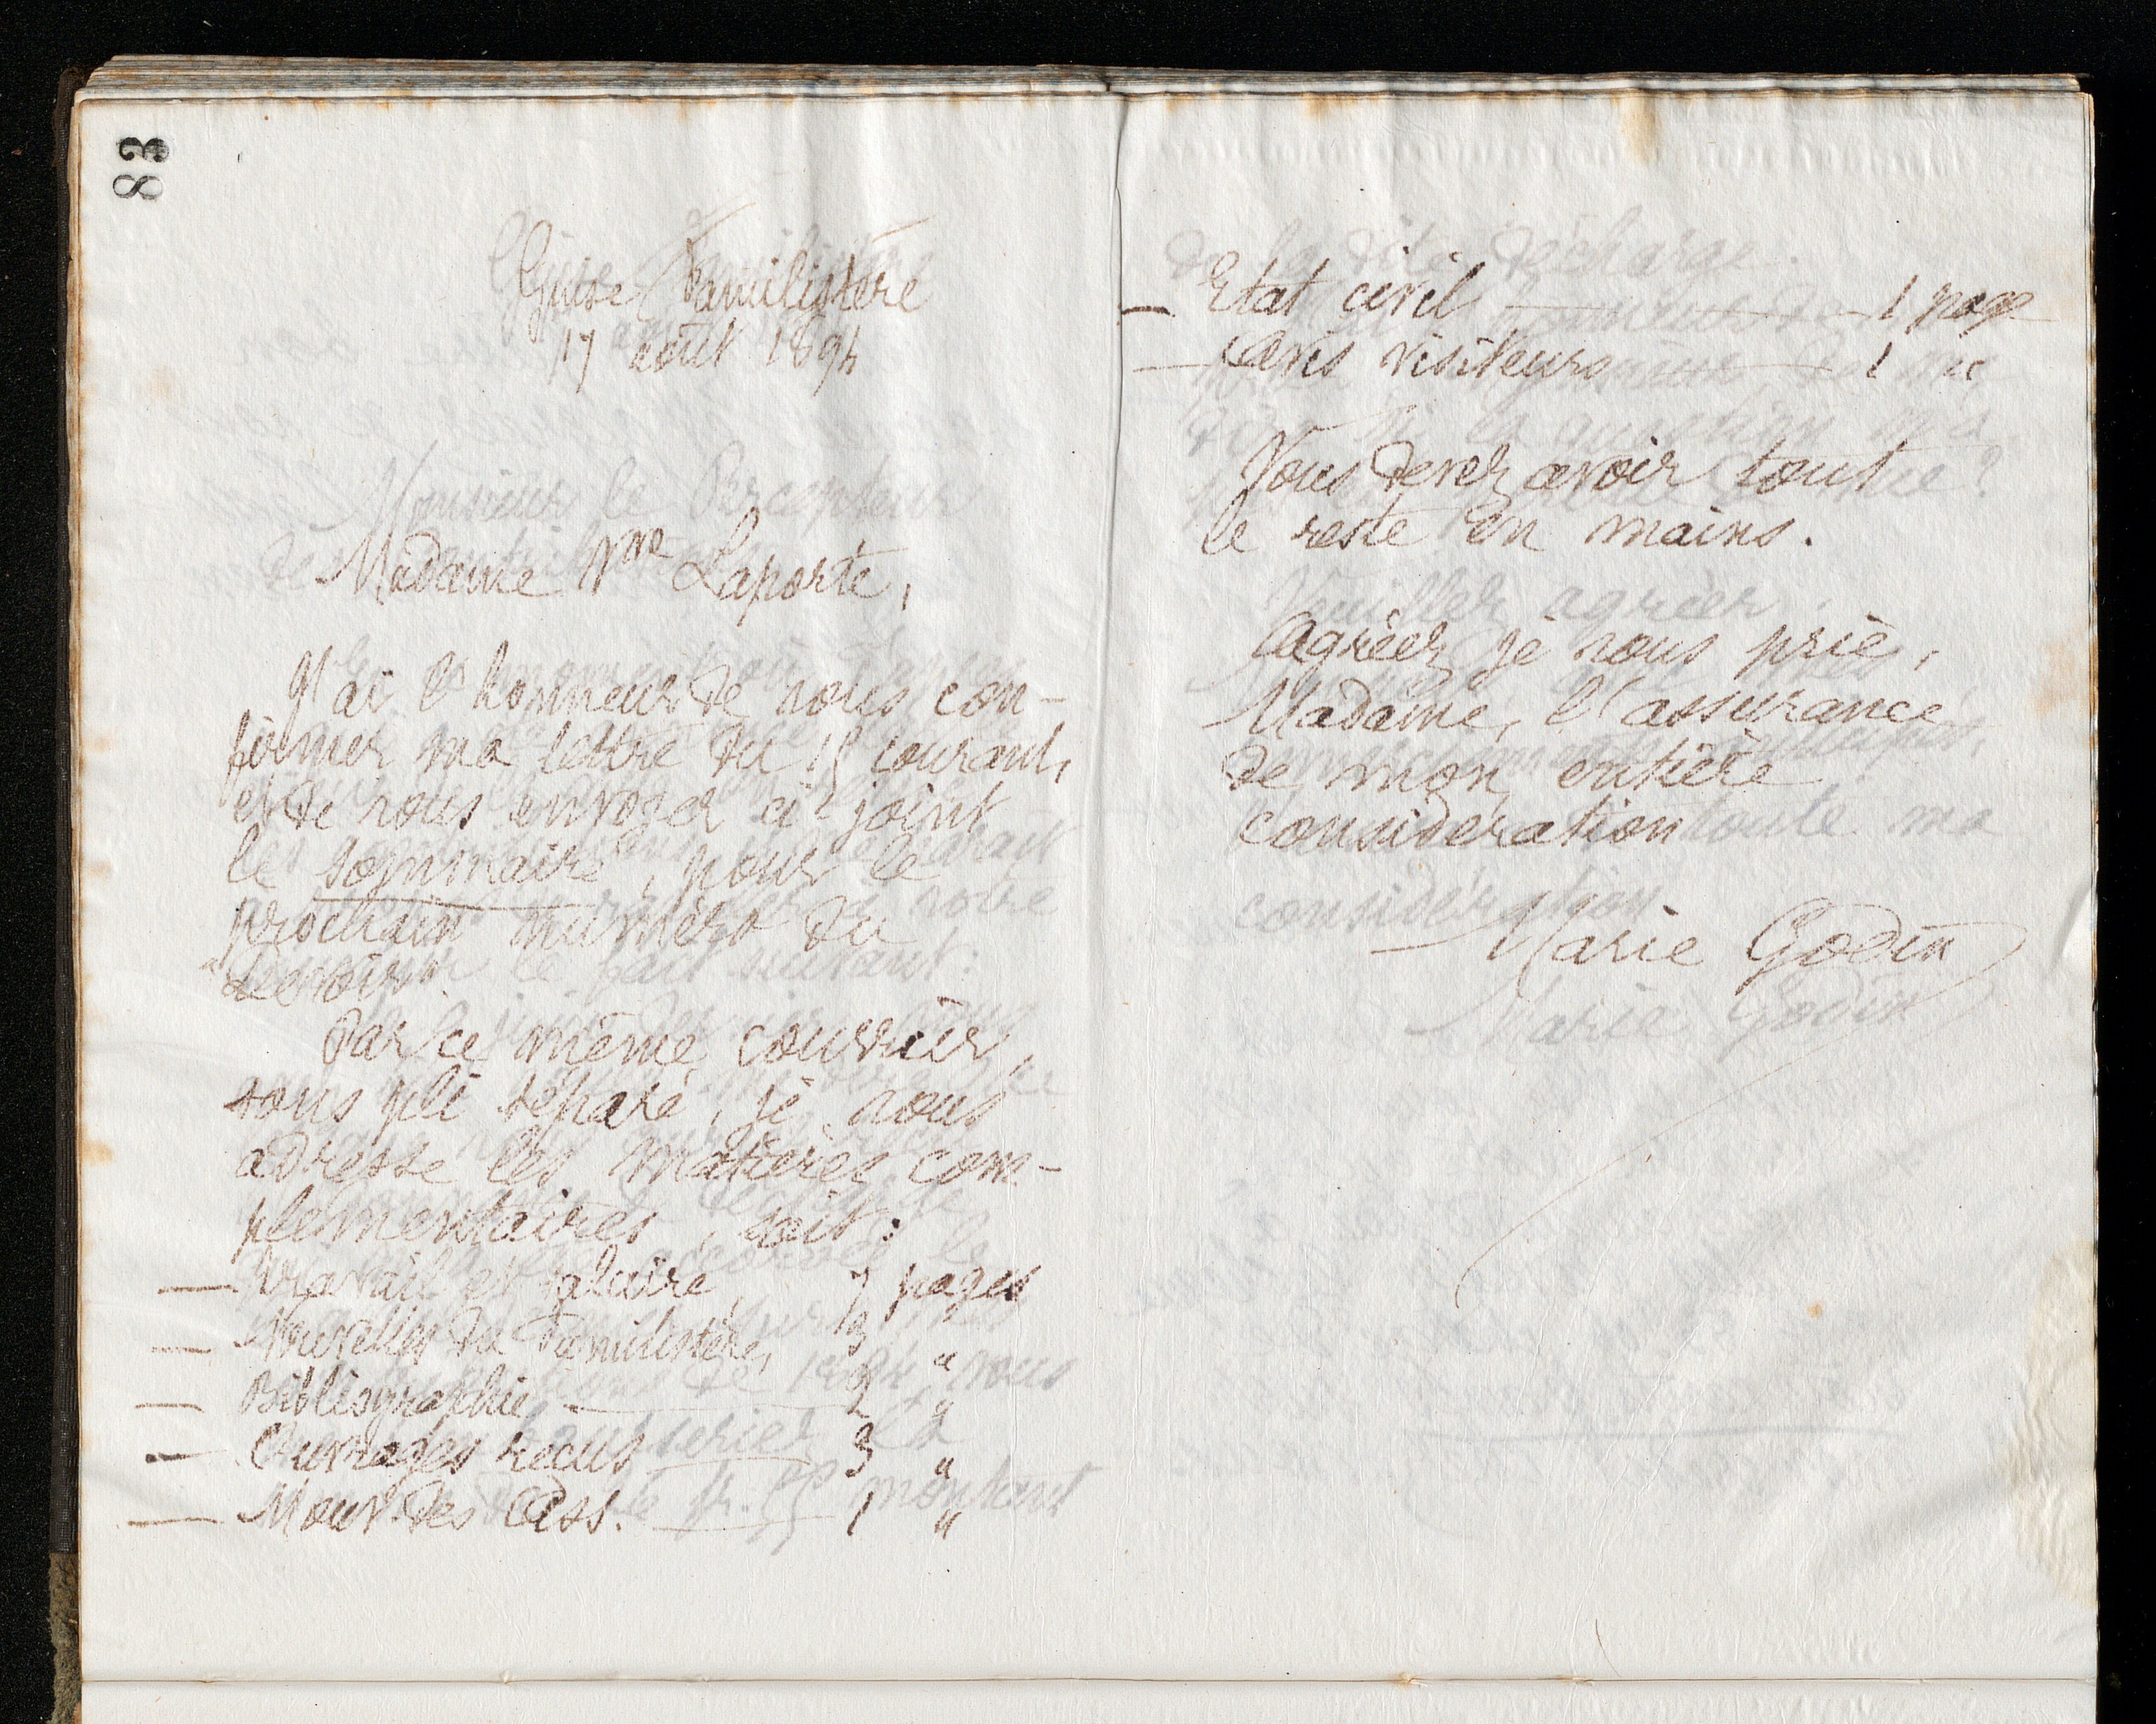 83
Guise Familistère
17 août 1894
Madame Vve Laporte,
J'ai l'honneur de vous con-
firmer ma lettre du 15 courant,
et de vous envoyer ci-joint
le sommaire, pour le
prochain numéro du
"Devoir".
Par ce même courrier,
sous pli séparé, je vous
adresse les matières com-
plémentaires, soit :
— Travail et salaire, 7 pages
— Nouvelles du Familistère, 3 "
— Bibliographie — 2 "
— Ouvrages reçus 3 "
— Mouv. des Ass. — 1 "
— Etat civil — 1 page
— Avis visiteurs — 1 "
Vous devez avoir tout
le reste en mains.
Agréez, je vous prie,
Madame, l'assurance
de mon entière
considération
Marie Godin